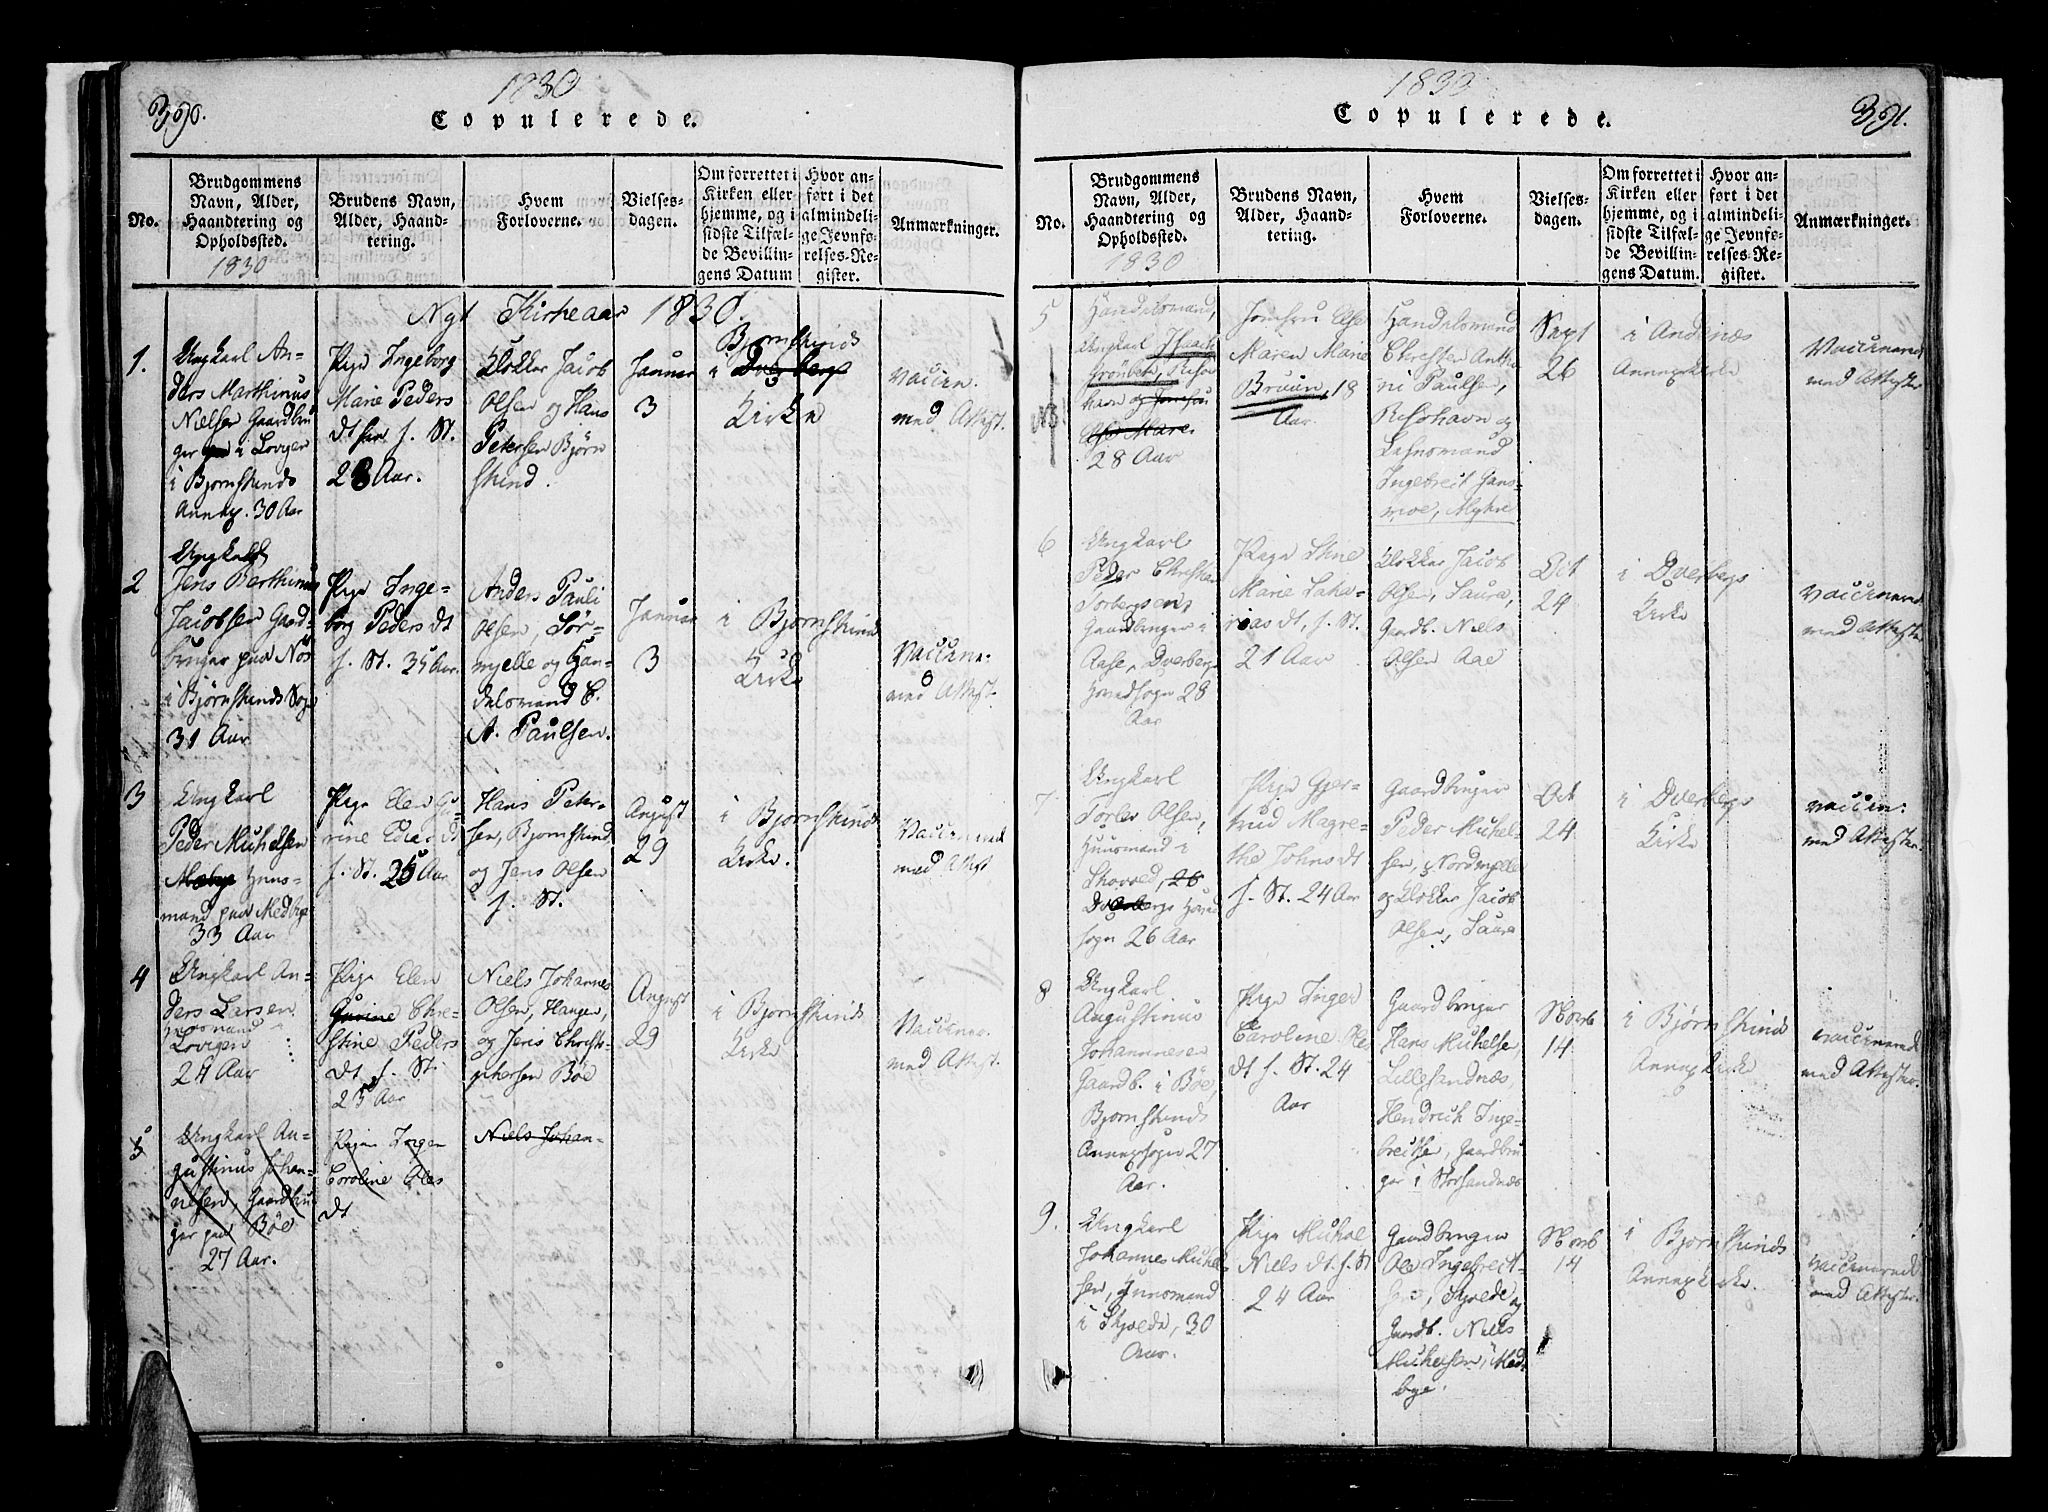 390.
1830
Copulerede.
No.
Brudgommens
Navn, Alder,
Haandtering og
Opholdssted.
1830
Brudens Navn,
Alder, Haand-
tering.
Hvem
Forloverne.
Vielses-
dagen.
Om forrettet i
Kirken eller
hjemme, og i
sidste Tilfæl-
de Bevillin-
gens Datum
Hvor an-
ført i det
almindeli-
ge Jevnfø-
relses-Re-
gister.
Anmærkninger.
Nyt Kirkeaar 1830.
1.
Ungkarl An-
ders Marthinus
Nielsen Gaardbru
ger i Lovigen
i Bjornskinds
Annex. 30 Aar
Pige Ingeborg
Marie Peders
dt f. St.
28 Aar.
Klokker Jacob
Olsen og Hans
Petersen Bjørn
skind.
Januar
3
Bjornskinds
i Dverbergs
Kirke
vaccin.
med Attest.
2
Ungkarl
Jens Berthinus
Jacobsen Gaard-
bruger paa Nøs
i Bjørnskinds Sogn
31 Aar
Pige Inge-
borg Peders dt
f. St. 35 Aar.
Anders Pauli
Olsen, Sør-
mjelle og Han-
delsmand C.
A. Paulsen.
Januar
3
i Bjornskind
Kirke
Vaccine.
med Attest.
3
Ungkarl
Peder Michelsen
Huus-
mand paa Medbye
33 Aar
Pige Elen Gu-
rine Edis dt
f. St. 25 Aar
Hans Peter-
sen, Bjornskind
og Jens Olsen
f. St.
August
29
i Bjornskinds
Kirke.
Vaccinered
med Attest
4
Ungkarl An-
ders Larsen
Huusmand
Lovigen
24 Aar
Pige Elen
Gurine Chre-
stine Peders
dt f. St.
25 Aar
Niels Johannes
Olsen, Haugen,
og Jens Christo-
phersen Böe
August
29
i Bjornskinds
Kirke
Vacciner.
med Attest.
5
Ungkarl Au-
gustinus Johan-
nesen, Gaardbru-
ger paa Böe
27 Aar.
Pige Inger
Caroline Oles
dt
Niels Johan-
391.
1830
Copulerede.
No.
Brudgommens
Navn, Alder,
Haandtering og
Opholdssted.
1830
Brudens Navn,
Alder, Haand-
tering.
Hvem
Forloverne.
Vielses-
dagen.
Om forrettet i
Kirken eller
hjemme, og i
sidste Tilfæl-
de Bevillin-
gens Datum.
Hvor an-
ført i det
almindeli-
ge Jevnfø-
relses-Re-
gister.
Anmærkninger.
5
Handelsmand,
Ungkarl
Risø-
havn og Jomfru
Else Maren
28 Aar
Jomfru Else
Maren Marie
Bruun, 18
Aar.
Handelsmand
Christen Antho
ni Paulsen,
Risøhavn og
Lehnsmand
Ingebrect Hans-
moe, Myhre
Sept
26
i Andenæs
Annexkirke
Vaccinered
med Attester
6
Ungkarl
Peder Christian
Torbergsen
Gaardbruger i
Aase, Dverbergs
Hovedsogn 28
Aar
Pige Stine
Marie Zaka-
rias dt, f. St.
21 Aar
Klokker Jacob
Olsen, Saura,
Gaardb. Niels
Olsen Aae
Oct
24
i Dverbergs
Kirke
vaccinered.
med Attester
7
Ungkarl
Torler Olsen,
Huusmand i
Skovold, 26
Dverbergs Hoved
sogn 26 Aar
Pige Gjer-
trud Magre-
the Johns dt
f. St. 24 Aar
Gaardbruger
Peder Michel-
sen, Nordmjelle
og Klokker Jacob
Olsen, Saura
Oct
24
i Dverbergs
Kirke
vaccin.
med Attester.
8
Ungkarl
Augustinus
Johannesen
Gaardb. i Böe,
Bjornskinds
Annexsogn 27
Aar.
Pige Inger
Caroline Oles
dt f. St. 24
Aar
Gaardbruger
Hans Michelsen,
Lillesandnæs,
Hendrich Inge-
brectsen, Gaardbru
ger i Storsandnæs
Novb
14
i Bjørnskinds
Annexkirke
vaccinered
med Attester.
9.
Ungkarl
Johannes Michel-
sen, Huusmand
i Skjolde, 30
Aar.
Pige Michal
Niels dt. f. St
24 Aar
Gaardbruger
Ole Ingebrect-
sen, og
Gaardb. Niels
Michelsen, Med-
bye.
Novb
14
i Bjornskinds
Annexkirke.
Vaccinered
med Attester.